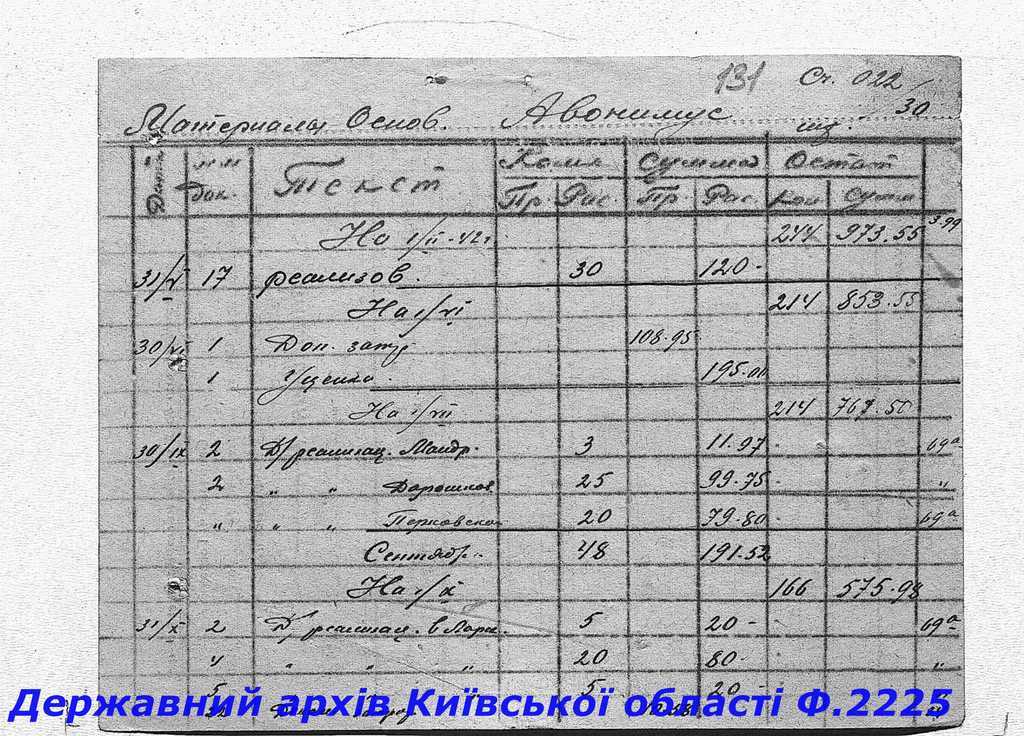 131 Сч. 022/30
Материалы Основ. Авонимус шт.
Дата №№ док. Текст Колич Сумма Остат
Пр. Рас. Пр. Рас. Кол Сумм
На 1/II-42г 244 973.55 3.99
31/V 17 реализов. 30 120-
На 1/VI 214 853.55
30/VI 1 Доп. затр 108.95
1 Уценка. 195.00
На 1/VII 214 767.50
30/IX 2 Д/реализац. Мандр. 3 11.97 69а
2 " " Дорошков 25 99.75 "
" " " 20 79.80 69а
Сентябр. 48 191.52
На 1/X 166 575.98
31/X 2 Д/реализац. в Мари. 5 20- 69а
" " " " 20 80- "
5 " 5 20-
Державний архів Київської області Ф.2225